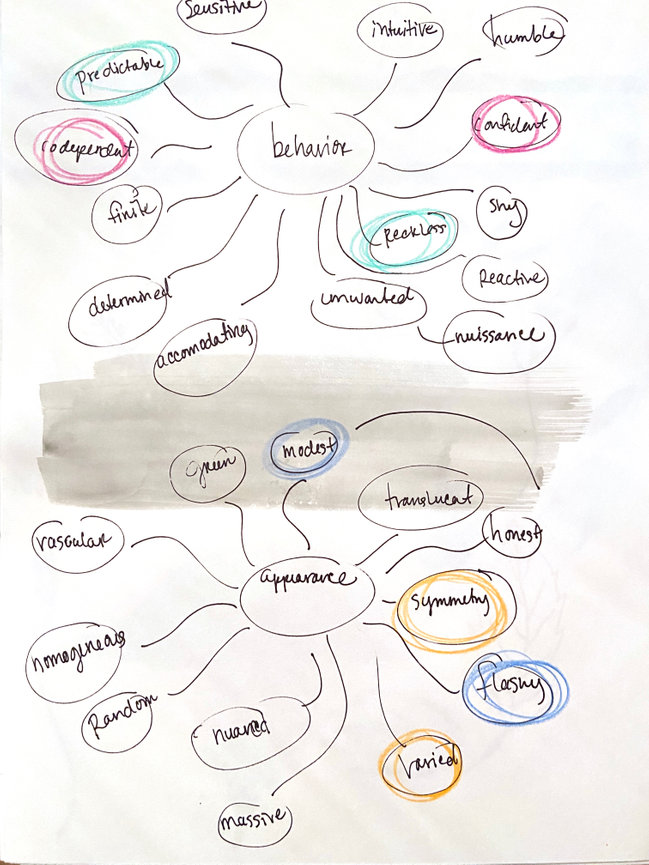 Sensitive
intuitive
humble
predictable
confident
codependent
behavior
finite
shy
Reckless
Reactive
determined
unwanted
accomodating
nuissance
modest
green
translucat
vascular
honest
appearance
symmetry
homogeneous
flashy
Random
nuanced
varied
massive